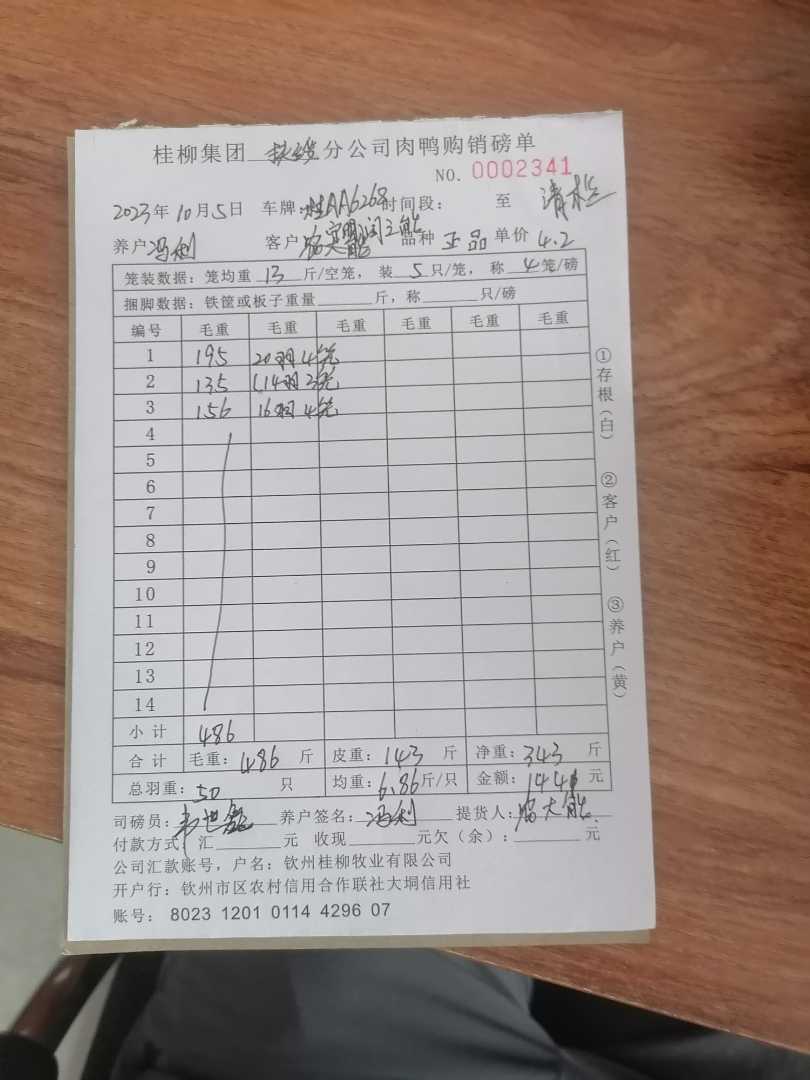 桂柳集团 扶绥 分公司肉鸭购销磅单
NO. 0002341
2023年10月5日 车牌:桂AA6268 时间段: 至
养户 冯利 客户 品种 正品 单价 4.2
笼装数据:笼均重 13 斤/空笼,装 5 只/笼,称 4 笼/磅
捆脚数据:铁筐或板子重量 斤,称 只/磅
编号 毛重 毛重 毛重 毛重 毛重 毛重
1 195 20羽4笼
2 135 14羽3笼
3 156 16羽4笼
4
5
6
7
8
9
10
11
12
13
14
小计 486
合计 毛重:486 斤 皮重:143 斤 净重:343 斤
总羽重:50 只 均重:6.86斤/只 金额:1441元
司磅员: 养户签名:冯利 提货人:
付款方式:汇 元 收现 元欠(余): 元
公司汇款账号,户名:钦州桂柳牧业有限公司
开户行:钦州市区农村信用合作联社大垌信用社
账号: 8023 1201 0114 4296 07
①存根(白)
②客户(红)
③养户(黄)